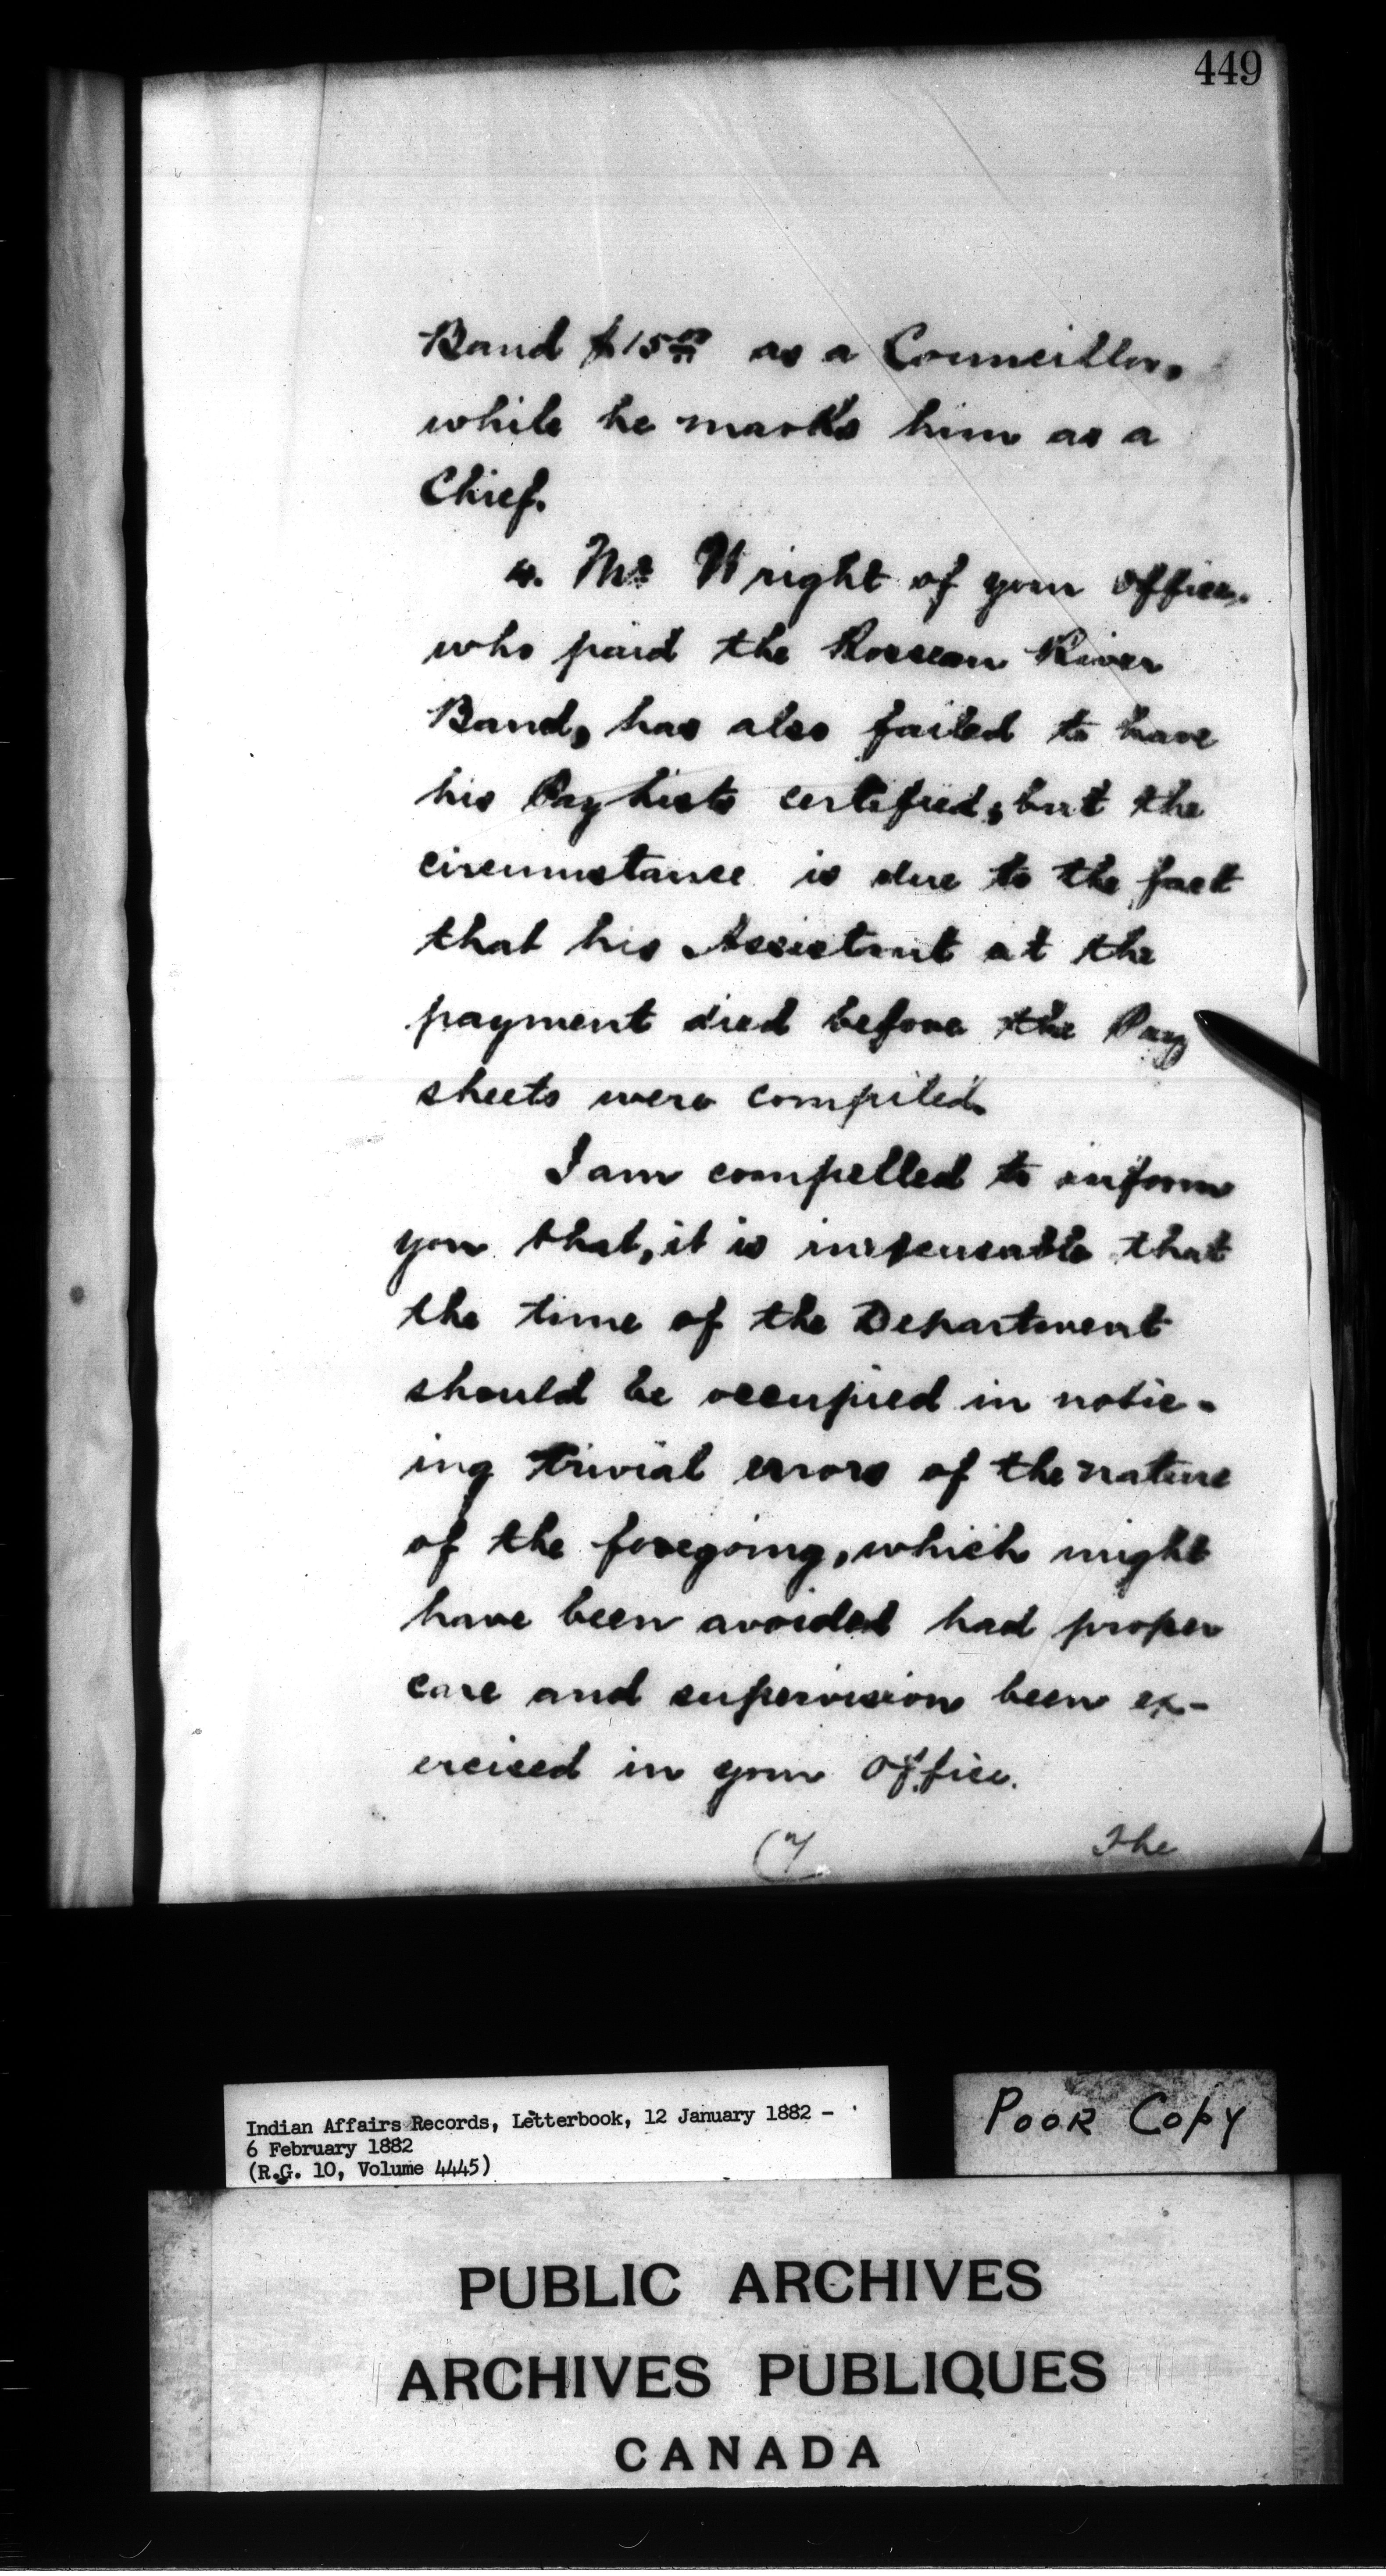 449
Band $15.00 as a Councillor,
while he marks him as a
Chief.
4. Mr Wright of your Office,
who paid the Rosseau River
Band, has also failed to have
his Pay lists certified, but the
circumstance is due to the fact
that his Assistant at the
payment died before the Pay
sheets were compiled.
I am compelled to inform
you that, it is inexcusable that
the time of the Department
should be occupied in notic-
ing trivial errors of the nature
of the foregoing, which might
have been avoided had proper
care and supervision been ex-
ercised in your Office.
The
Indian Affairs Records, Letterbook, 12 January 1882 -
6 February 1882
(R.G. 10, Volume 4445)
POOR COPY
PUBLIC ARCHIVES
ARCHIVES PUBLIQUES
CANADA